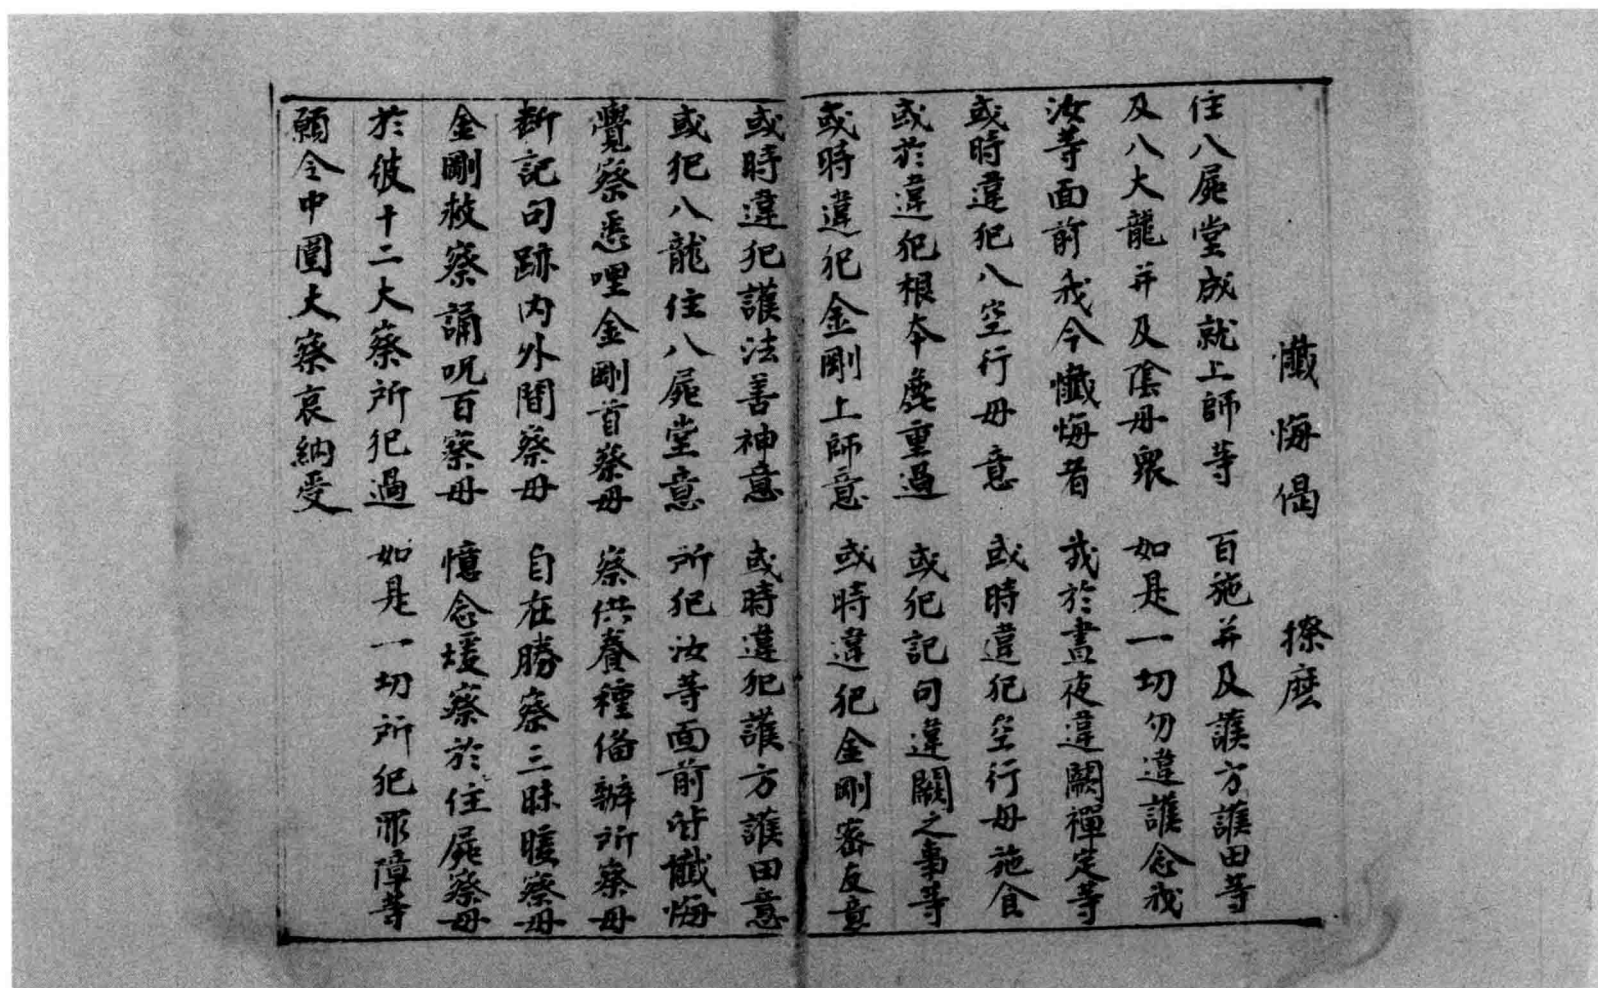 懺悔偈 擦庅
住八屍堂成就上師等 百施并及護方護田等
及八大龍并及陰母衆 如是一切勿違護念我
汝等面前我今懺悔者 我於晝夜違闕禪定等
或時違犯八空行母意 或時違犯空行母施食
或於違犯根本麁重過 或犯記句違闕之事等
或時違犯金剛上師意 或時違犯金剛密友意
或時違犯護法善神意 或時違犯護方護田意
或犯八龍住八屍堂意 所犯汝等面前皆懺悔
覺察悉哩金剛首察母 察供養種備辦所察母
斷記句跡内外間察母 自在勝察三昧暖察母
金剛赦察誦呪百察母 憶念煖察於住屍察母
於彼十二大察所犯過 如是一切所犯罪障等
願令中圍大察哀納受